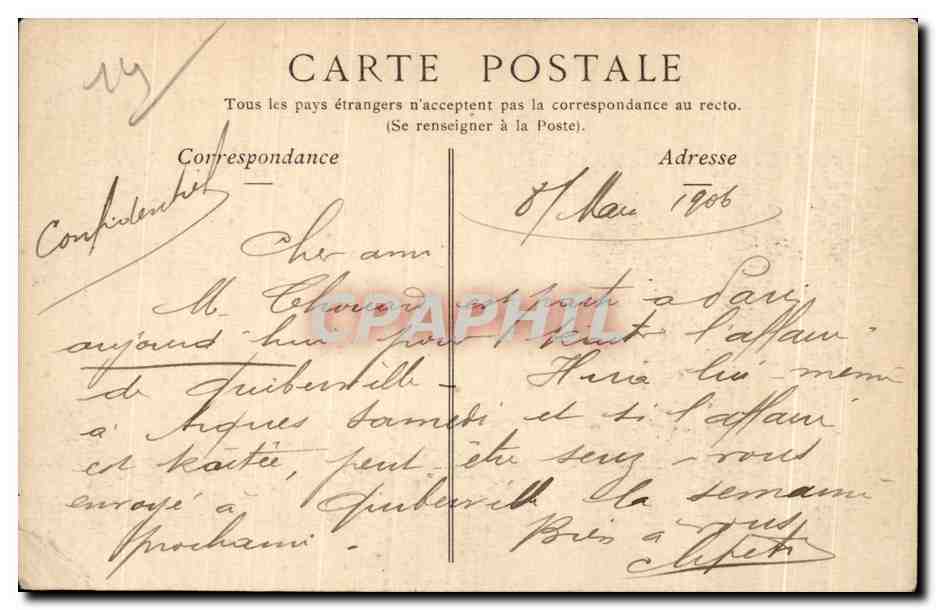 19
CARTE POSTALE
Tous les pays étrangers n'acceptent pas la correspondance au recto.
(Se renseigner à la Poste).
Correspondance
Adresse
Confidentiel
8/ Mars 1906
Cher ami
M. Chouard est parti à Paris
aujourd'hui pour l'affaire
de Quiberville - Il ira lui-même
à Arques samedi et si l'affaire
est traitée, peut-être serez-vous
envoyé à Quiberville la semaine
prochaine -
Bien à vous
CPAPHIL